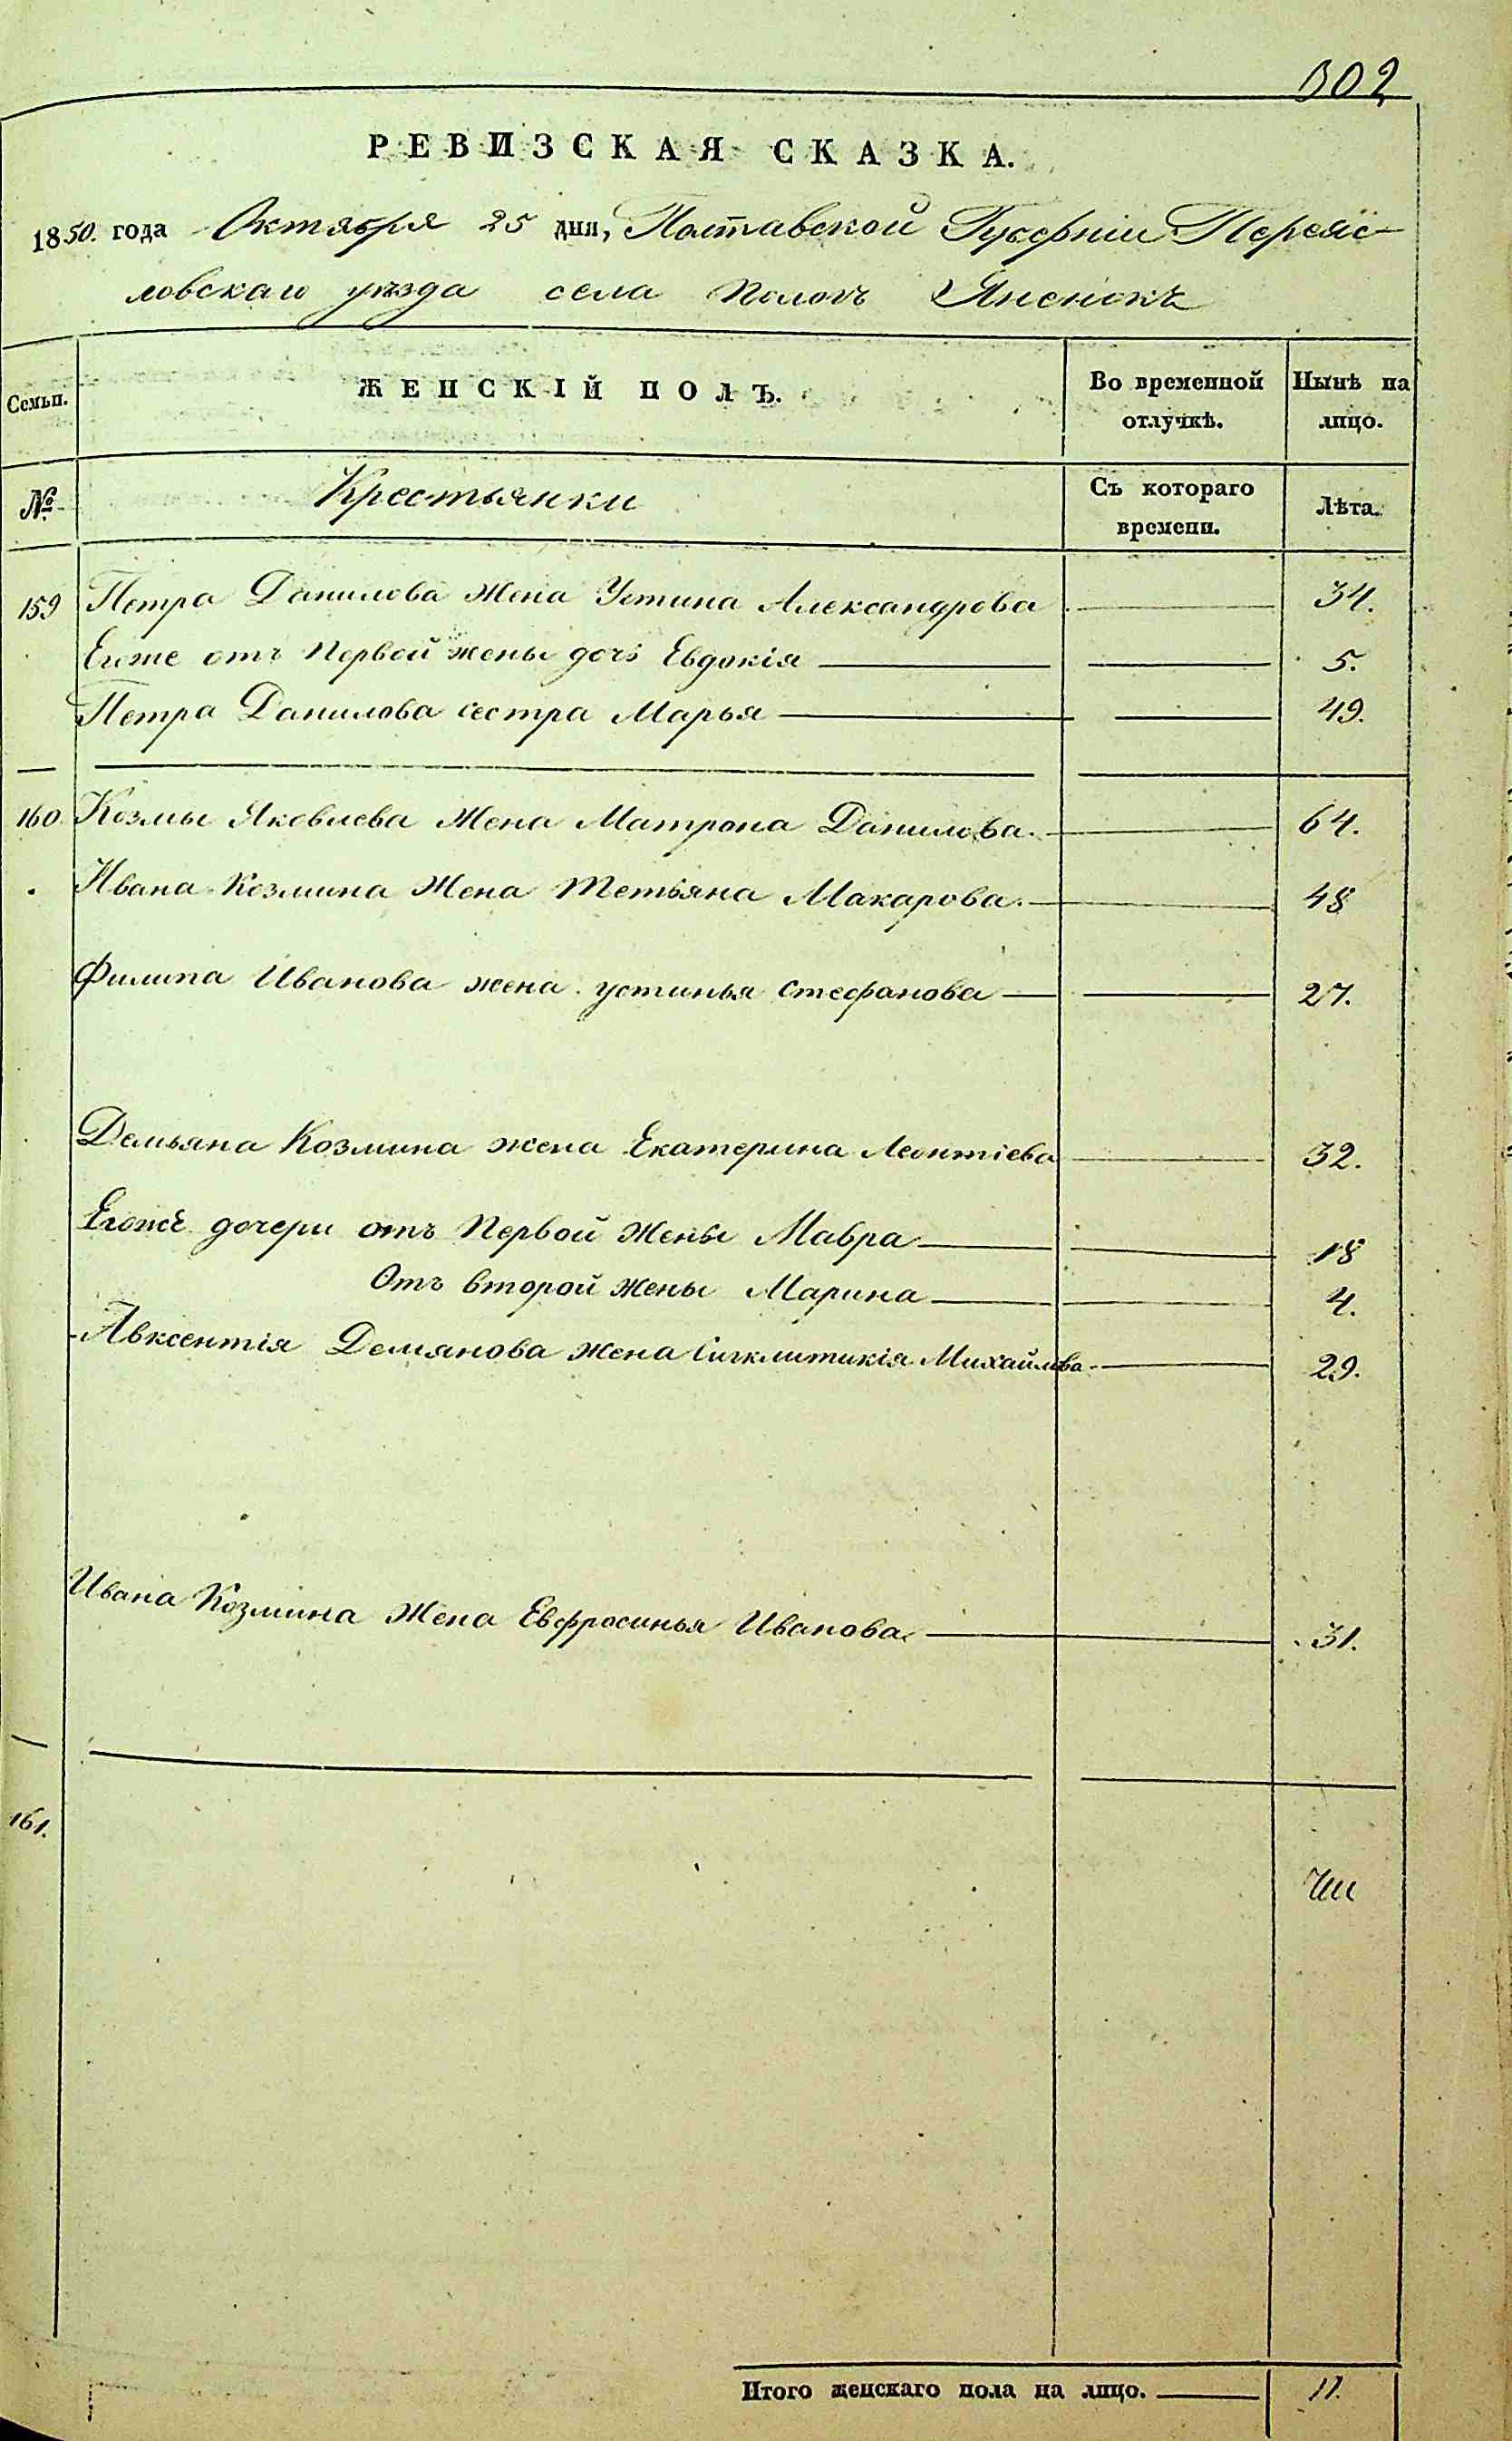 302
РЕВИЗСКАЯ СКАЗКА.
1850. года Октября 25 дня, Полтавской Губерніи Переяс-
ловскаго уезда села Пологъ Яненокъ
Семьи. ЖЕНСКІЙ ПОЛЪ. Во временной отлучкѣ. Нынѣ на лицо.
№ Крестьянки Съ котораго времени. Лѣта.
159 Петра Данилова жена Устина Александрова 34.
Егоже отъ Первой жены дочь Евдокія 5.
Петра Данилова сестра Марья 49.
160 Козмы Яковлева Жена Матрона Данилова. 64.
Ивана Козмина Жена Тетьяна Макарова. 48
Филипа Иванова жена устинья Стефанова 27.
Демьяна Козмина жена Екатерина Леонтіева 32.
Егоже дочери отъ Первой Жены Мавра 18
Отъ второй Жены Марина 4.
Авксентія Демянова жена Сигклитикія Михайлова 29.
Ивана Козмина Жена Евфросинья Иванова 31.
161.
Итого женскаго пола на лицо. 11.